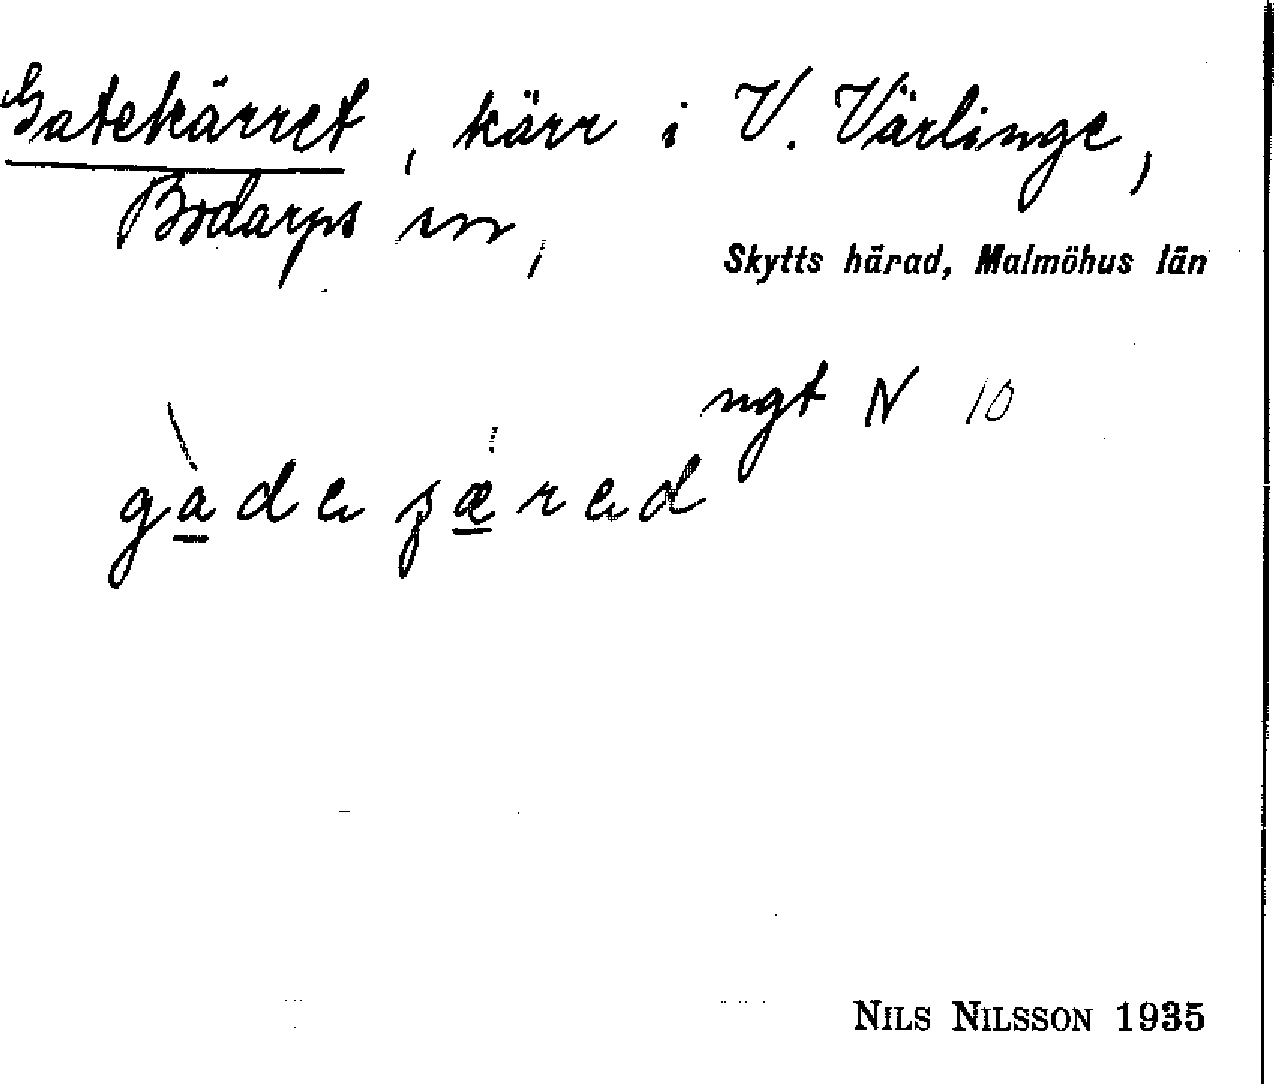 Gatekärret, kärr i V. Värlinge,
Bodarps sn,
Skytts härad, Malmöhus län
ngt N 10
gàde ʂæred
NILS NILSSON 1935